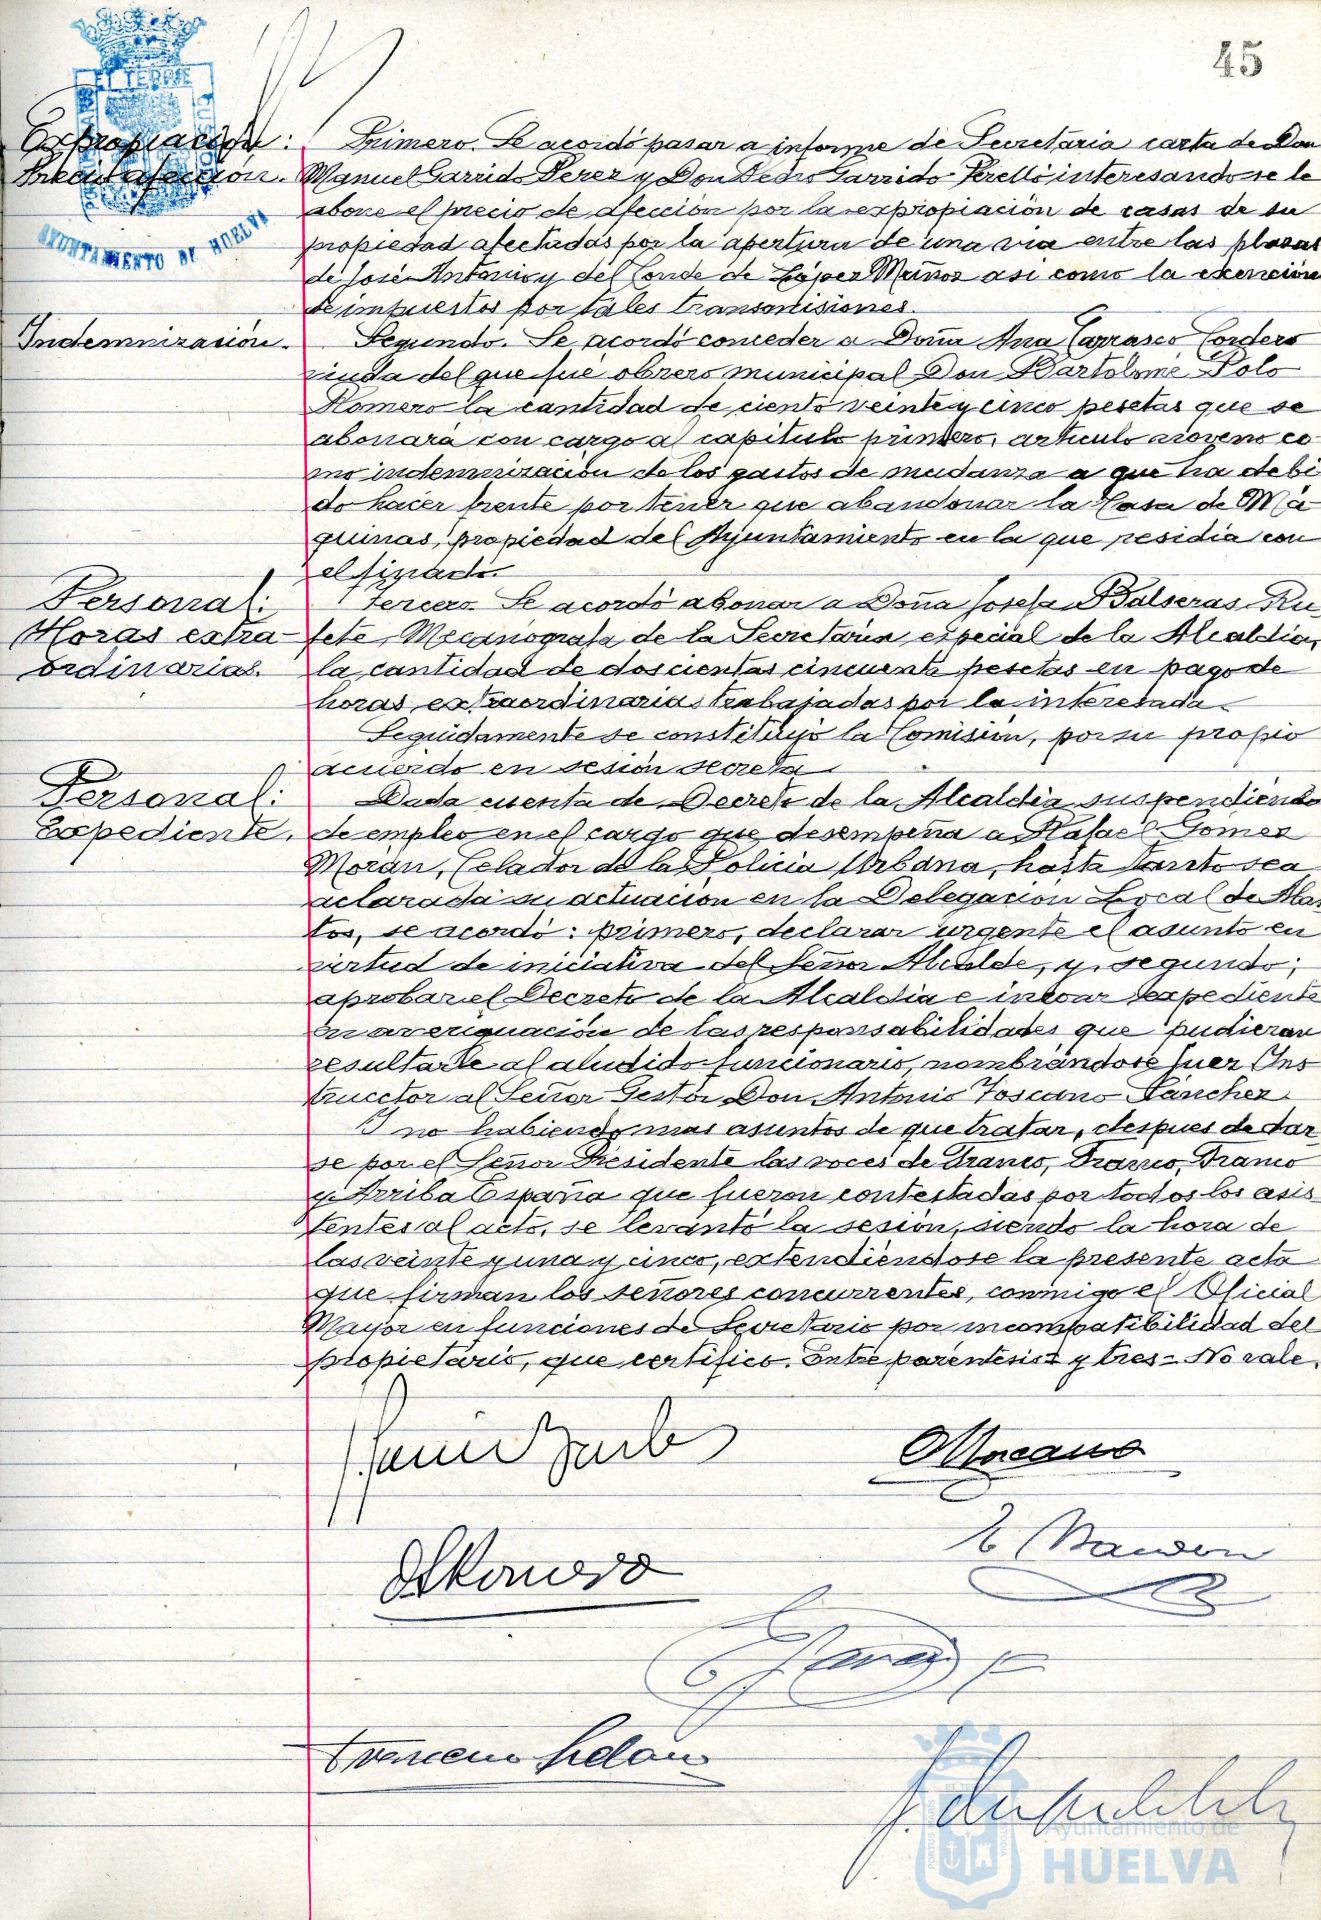 45
ET TERRE
AYUNTAMIENTO DE HUELVA
Expropiación:
Precio afección.
Primero. Se acordó pasar a informe de Secretaria carta de Don
Manuel Garrido Perez y Don Pedro Garrido Perelló interesando se le
abone el precio de afección por la expropiación de casas de su
propiedad afectadas por la apertura de una via entre las plazas
de José Antonio y del Conde de López Muñoz asi como la exención
de impuestos por tales transmisiones.
Indemnización.
Segundo. Se acordó conceder a Doña Ana Carrasco Cordero
viuda del que fué obrero municipal Don Bartolomé Polo
Romero la cantidad de ciento veinte y cinco pesetas que se
abonará con cargo al capitulo primero, articulo noveno co-
mo indemnización de los gastos de mudanza a que ha debi
do hacer frente por tener que abandonar la Casa de Má-
quinas, propiedad del Ayuntamiento en la que residia con
el finado.
Personal:
Horas extra-
ordinarias.
Tercero. Se acordó abonar a Doña Josefa Balseras Ru-
fete, Mecanografa de la Secretaria especial de la Alcaldia,
la cantidad de doscientas cincuenta pesetas en pago de
horas extraordinarias trabajadas por la interesada.
Seguidamente se constituyó la Comisión, por su propio
acuerdo en sesión secreta.
Personal:
Expediente.
Dada cuenta de Decreto de la Alcaldia suspendiendo
de empleo en el cargo que desempeña a Rafael Gomez
Morán, Celador de la Policia Urbana, hasta tanto sea
aclarada su actuación en la Delegación Local de Abas
tos, se acordó: primero, declarar urgente el asunto en
virtud de iniciativa del Señor Alcalde, y, segundo;
aprobar el Decreto de la Alcaldia e incoar expediente
en averiguación de las responsabilidades que pudieran
resultarle al aludido funcionario, nombrándose Juez Ins
tructor al Señor Gestor Don Antonio Toscano Sánchez.
Y no habiendo mas asuntos de que tratar, despues de dar
se por el Señor Presidente las voces de Franco, Franco, Franco
y Arriba España que fueron contestadas por todos los asis
tentes al acto, se levantó la sesión, siendo la hora de
las veinte y una y cinco, extendiéndose la presente acta
que firman los señores concurrentes, conmigo el Oficial
Mayor en funciones de Secretario por incompatibilidad del
propietario, que certifico. Entre paréntesis = y tres = No vale.
Ayuntamiento de
HUELVA